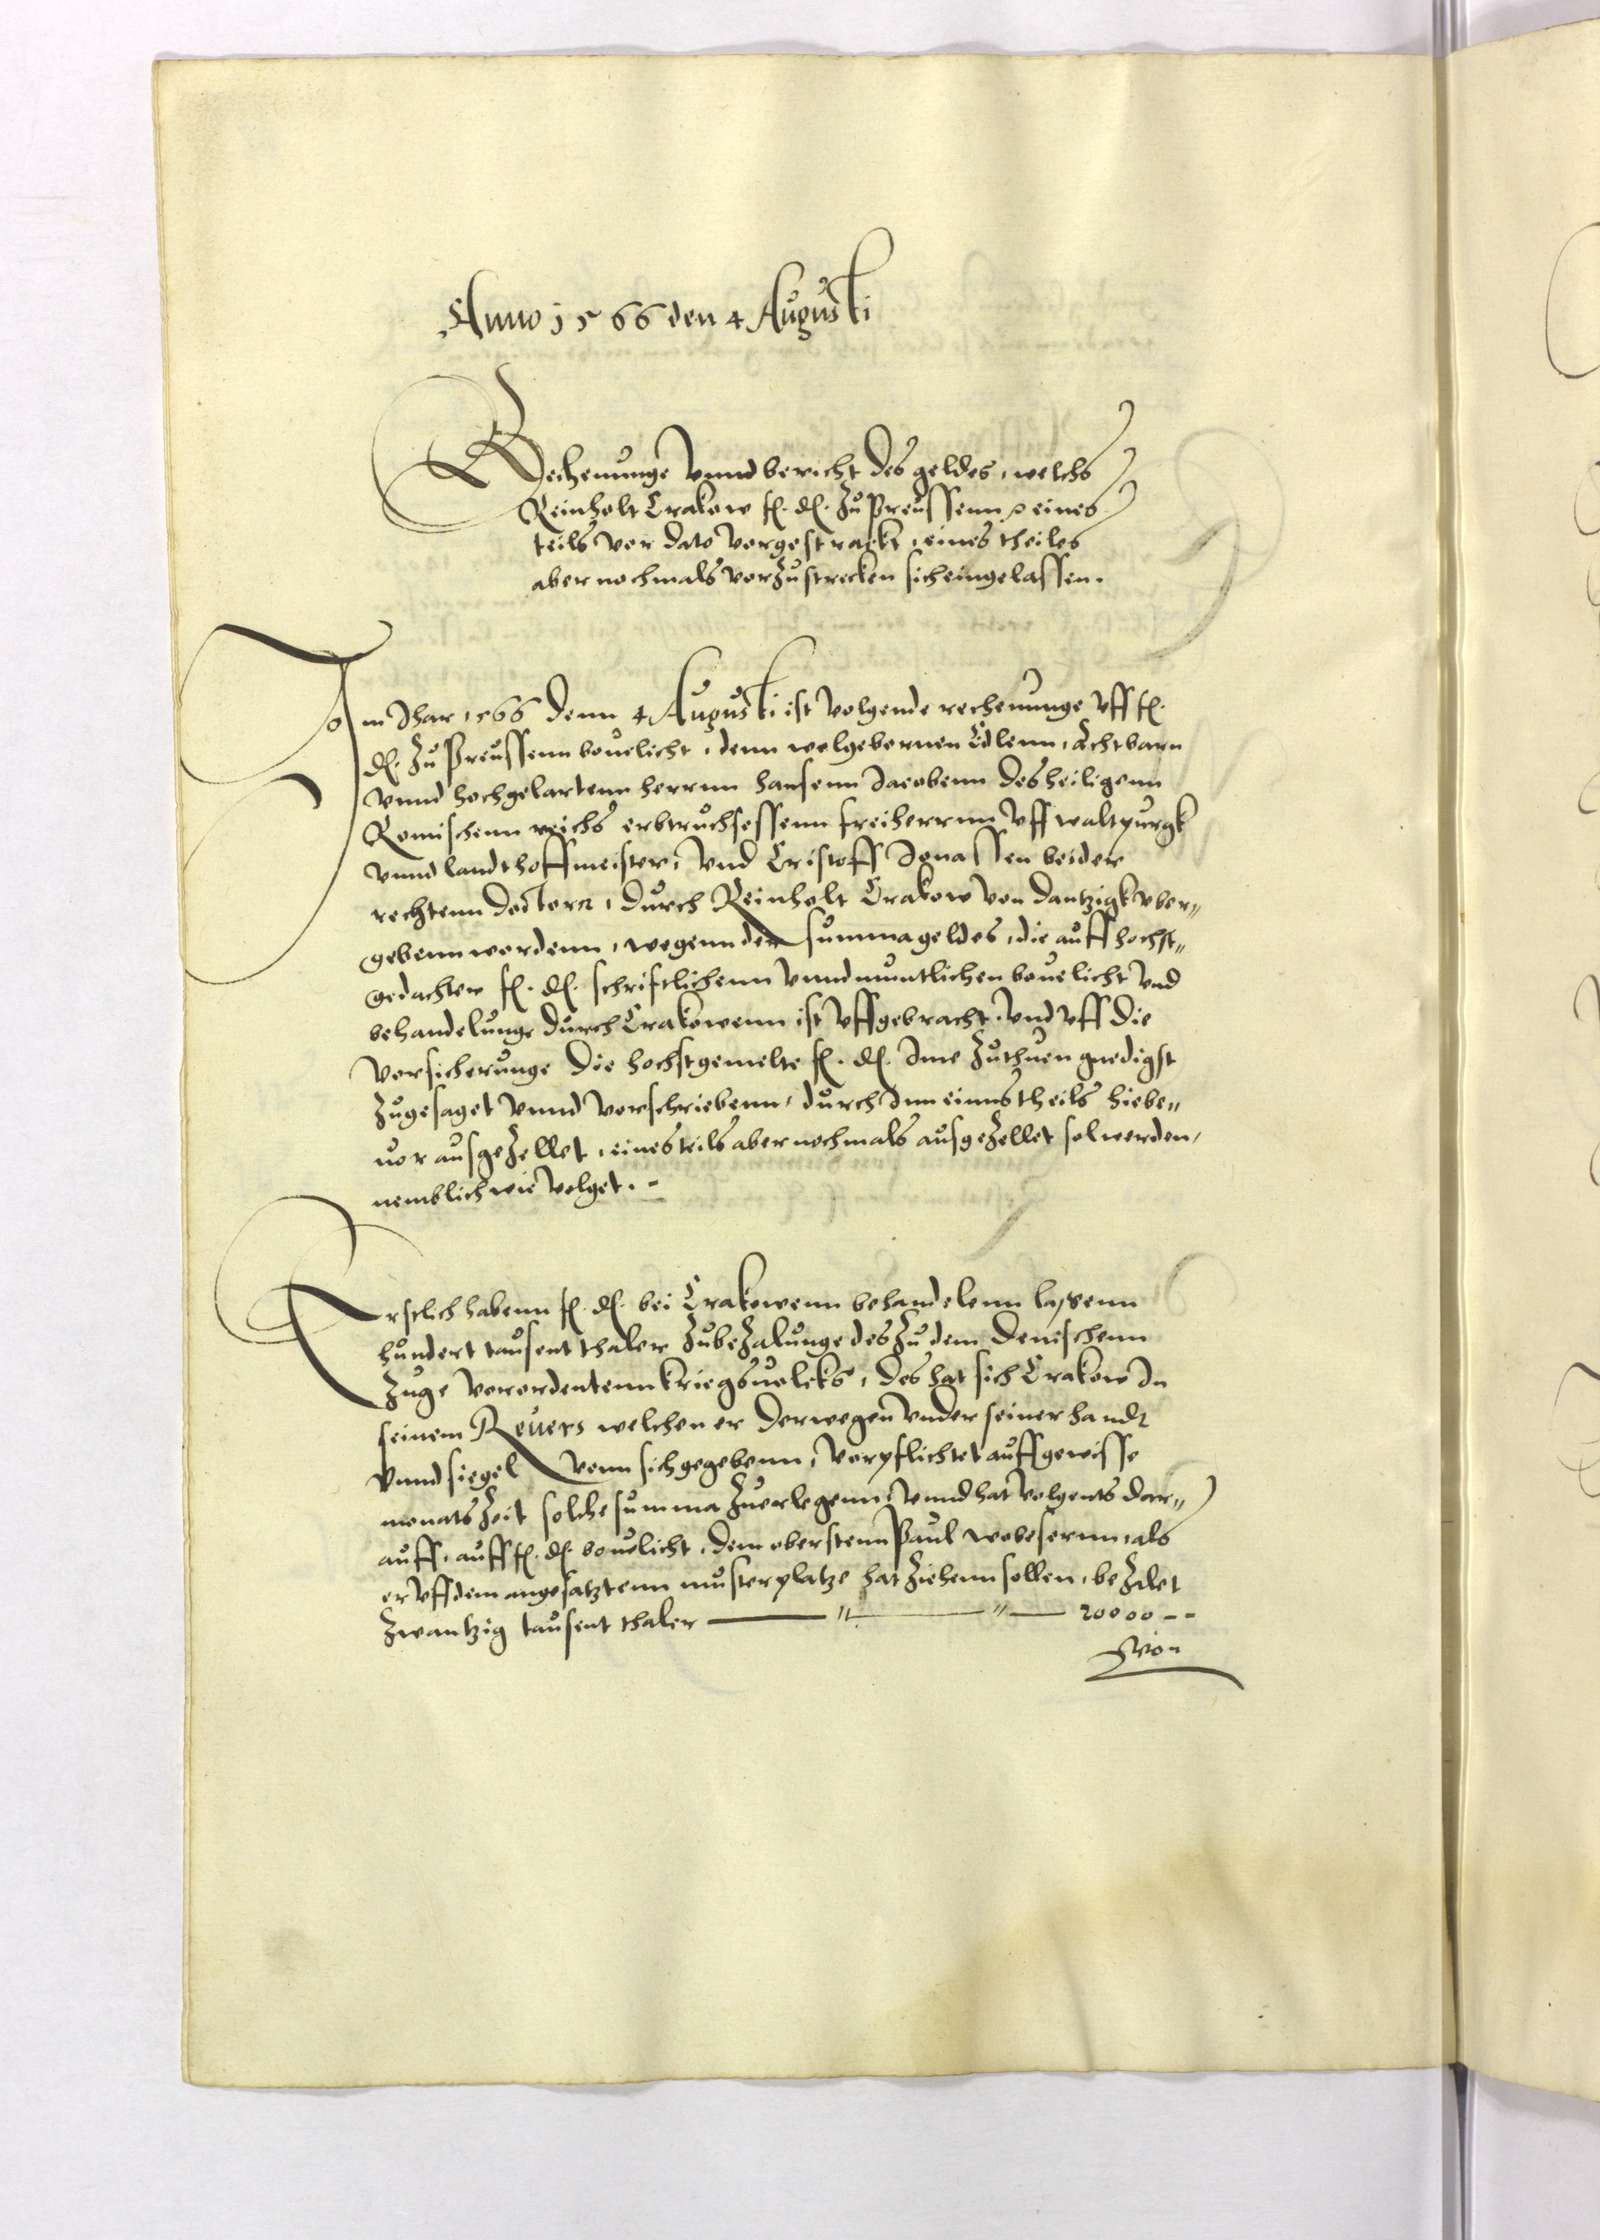 Anno 1566 den 4 Augusti
Rechenunge vnnd bericht des geldes, welchs
Reinholt Crakow f. d. zu Preussenn ꝛ eines
teils vor dato vorgestrackt, eines theiles
aber nochmals vorzustrecken sich eingelassen.
Im Jhar 1566 denn 4 Augusti ist volgende rechenunge vff f.
d. zu Preussenn beuelicht, denn wolgebornen Edlenn, Achtbarn
vnnd hochgelartenn herrnn hansenn Jacobenn des heiligenn
Romischenn reichs erbtruchsessenn freiherrnn vff waltpurgk
vnnd landthoffmeister, vnd Cristoff Jonassen beider
rechtenn doctorn, durch Reinholt Crakow von dantzigk vber„
gebenn wordenn, wegenn der summa geldes, die auff hochst„
gedachter f. d. schriftlichenn vnnd muntlichen beuelicht vnd
behandelunge durch Crakowenn ist vffgebracht, vnd vff die
vorsicherunge die hochstgemelte f. d. Ime zuthuen gnedigst
zugesaget vnnd vorschriebenn, durch Inn einnstheils hiebe„
uor ausgezellet, eines teils aber nochmals ausgezellet sol werden,
nemblich wie volget. -
Erstlich habenn f. d. bei Crakowenn behandelenn lassenn
hundert tausent thaler zubezalunge des zu dem denischenn
zuge vorordentenn kriegsuolcks, des hat sich Crakow In
seinem Reuers welchen er derwegen vnder seiner handt
vnnd siegel vonn sich gegebenn, vorpflichtet auff gewisse
monats zeit solche summa zuerlegenn, vnnd hat volgents dar„
auff, auff f. d. beuelicht, dem oberstenn Paul wobesernn, als
er vff dem angesatztenn musterplatze hat ziehenn sollen, bezalet
zwantzig tausent thaler — „ — „ — 20000 - -